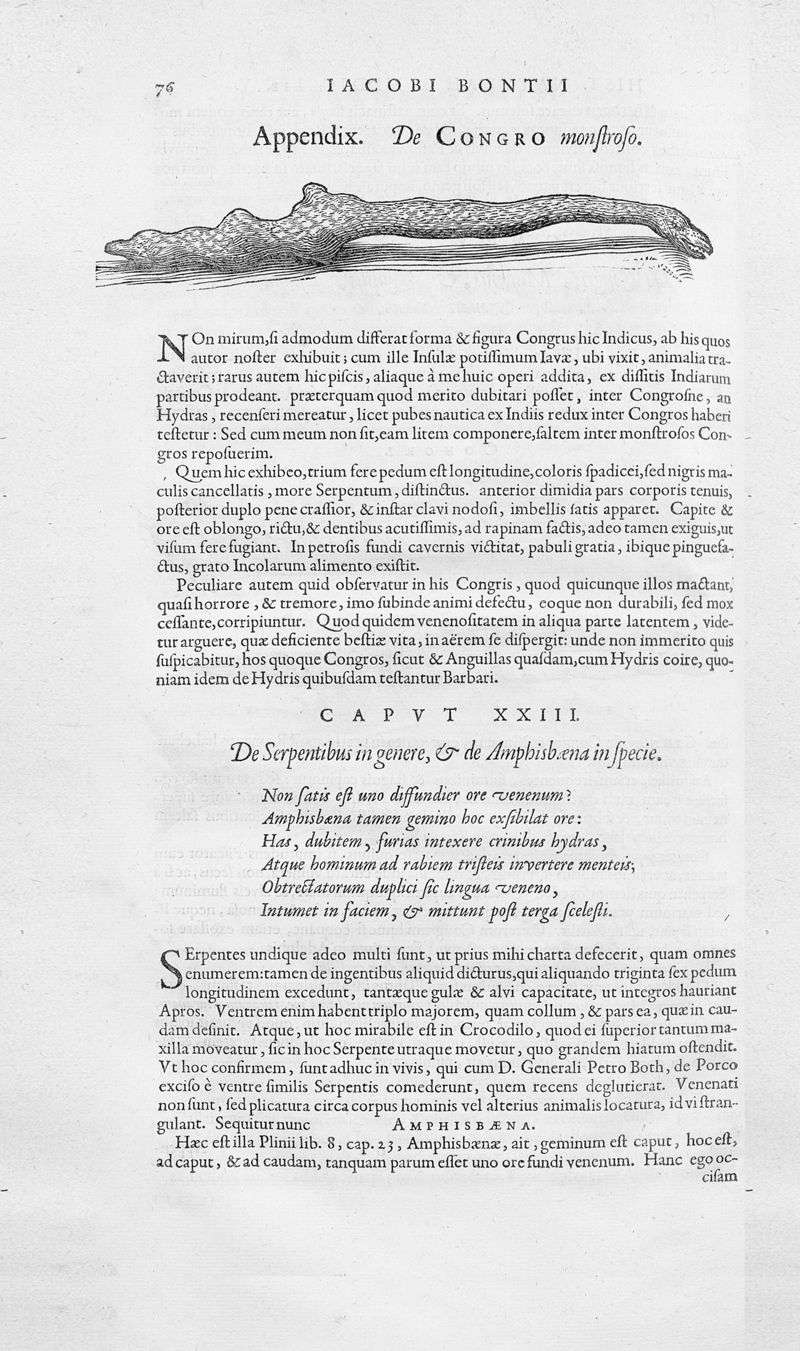 76 IACOBI BONTII
Appendix. De CONGRO monſtroſo.
NOn mirum, ſi admodum differat forma & figura Congrus hic Indicus, ab his quos
autor noſter exhibuit; cum ille Inſulæ potiſſimum Iavæ, ubi vixit, animalia tra-
ctaverit; rarus autem hic piſcis, aliaque à me huic operi addita, ex diſſitis Indiarum
partibus prodeant. præterquam quod merito dubitari poſſet, inter Congroſne, an
Hydras, recenſeri mereatur, licet pubes nautica ex Indiis redux inter Congros haberi
teſtetur: Sed cum meum non ſit, eam litem componere, ſaltem inter monſtroſos Con-
gros repoſuerim.
Quem hic exhibeo, trium fere pedum eſt longitudine, coloris ſpadicei, ſed nigris ma-
culis cancellatis, more Serpentum, diſtinctus. anterior dimidia pars corporis tenuis,
poſterior duplo pene craſſior, & inſtar clavi nodoſi, imbellis ſatis apparet. Capite &
ore eſt oblongo, rictu, & dentibus acutiſſimis, ad rapinam factis, adeo tamen exiguis, ut
viſum fere fugiant. In petroſis fundi cavernis victitat, pabuli gratia, ibique pinguefa-
ctus, grato Incolarum alimento exiſtit.
Peculiare autem quid obſervatur in his Congris, quod quicunque illos mactant,
quaſi horrore, & tremore, imo ſubinde animi defectu, eoque non durabili, ſed mox
ceſſante, corripiuntur. Quod quidem venenoſitatem in aliqua parte latentem, vide-
tur arguere, quæ deficiente beſtiæ vita, in aërem ſe diſpergit: unde non immerito quis
ſuſpicabitur, hos quoque Congros, ſicut & Anguillas quaſdam, cum Hydris coire, quo-
niam idem de Hydris quibuſdam teſtantur Barbari.
CAPVT XXIII.
De Serpentibus in genere, & de Amphisbæna in ſpecie.
Non ſatis eſt uno diffundier ore venenum?
Amphisbæna tamen gemino hoc exſibilat ore:
Has, dubitem, furias intexere crinibus hydras,
Atque hominum ad rabiem triſteis invertere menteis;
Obtrectatorum duplici ſic lingua veneno,
Intumet in faciem, & mittunt poſt terga ſceleſti.
SErpentes undique adeo multi ſunt, ut prius mihi charta defecerit, quam omnes
enumerem: tamen de ingentibus aliquid dicturus, qui aliquando triginta ſex pedum
longitudinem excedunt, tantæque gulæ & alvi capacitate, ut integros hauriant
Apros. Ventrem enim habent triplo majorem, quam collum, & pars ea, quæ in cau-
dam deſinit. Atque, ut hoc mirabile eſt in Crocodilo, quod ei ſuperior tantum ma-
xilla moveatur, ſic in hoc Serpente utraque movetur, quo grandem hiatum oſtendit.
Vt hoc confirmem, ſunt adhuc in vivis, qui cum D. Generali Petro Both, de Porco
exciſo è ventre ſimilis Serpentis comederunt, quem recens deglutierat. Venenati
non ſunt, ſed plicatura circa corpus hominis vel alterius animalis locatura, id vi ſtran-
gulant. Sequitur nunc AMPHISBÆNA.
Hæc eſt illa Plinii lib. 8, cap. 23, Amphisbænæ, ait, geminum eſt caput, hoc eſt,
ad caput, & ad caudam, tanquam parum eſſet uno ore fundi venenum. Hanc ego oc-
ciſam